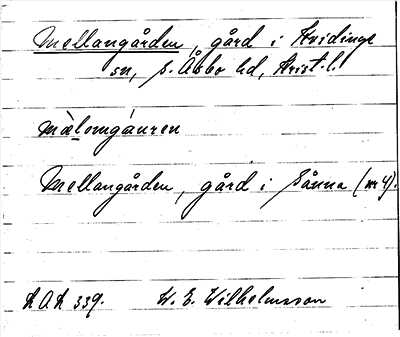 Mellangården, gård i Kvidinge
sn, S. Åsbo hd, Krist. l.
màlomgáuren
Mellangården, gård i Sånna (nr 4).
L A L 339. W. E. Wilhelmsson